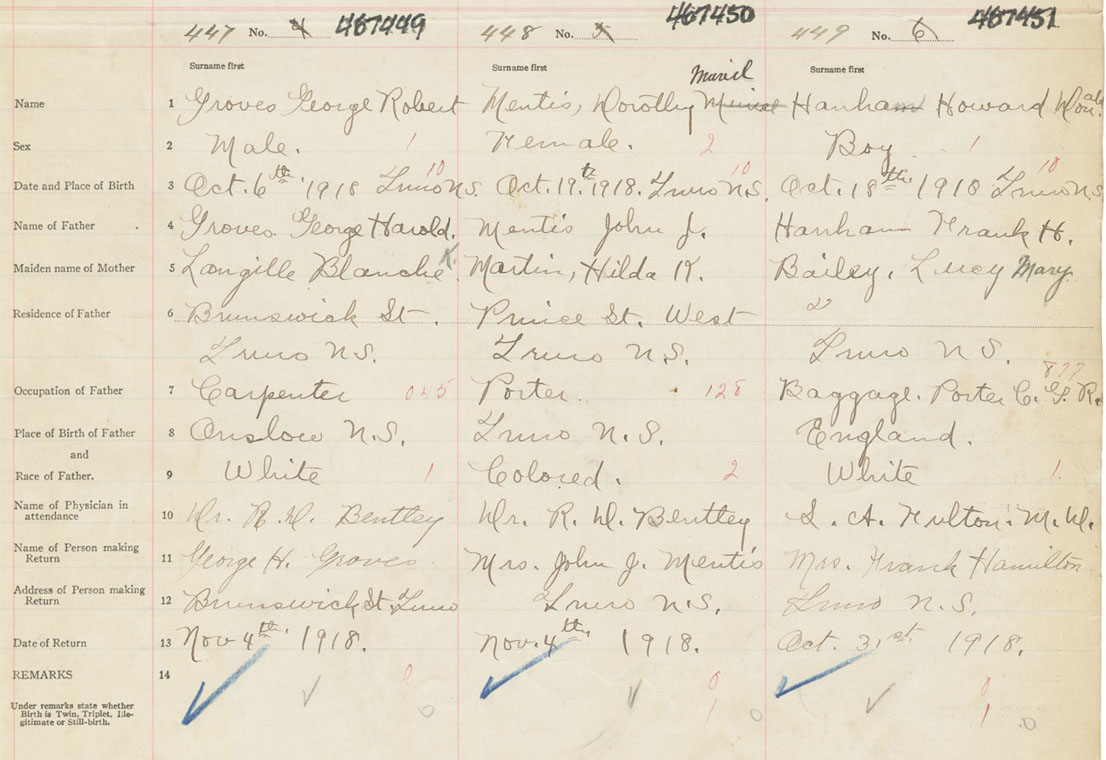 447 No. 4 467449 448 No. 5 467450 449 No. 6 467451
Surname first Surname first Surname first
Muriel
Name 1 Groves George Robert Mentis, Dorothy Hanham Howard Donald.
Sex 2 Male. 1 Female. 2 Boy 1
10 10 10
Date and Place of Birth 3 Oct. 6th 1918 Truro N.S. Oct. 19.th 1918. Truro N.S. Oct. 18th 1918 Truro N.S.
Name of Father 4 Groves George Harold. Mentis John J. Hanham Frank H.
Maiden name of Mother 5 Langille Blanche K. Martin, Hilda K. Bailey, Lucy Mary
Residence of Father 6 Brunswick St. Prince St. West
Truro N.S. Truro N.S. Truro N.S.
877
Occupation of Father 7 Carpenter 045 Porter. 128 Baggage. Porter C. G. R.
Place of Birth of Father 8 Onslow N.S. Truro N.S. England.
and
Race of Father. 9 White 1 Colored. 2 White 1
Name of Physician in
attendance 10 Dr. R. D. Bentley Dr. R. D. Bentley S. A. Fulton. M.D.
Name of Person making
Return 11 George H. Groves. Mrs. John J. Mentis Mrs. Frank Hamilton
Address of Person making
Return 12 Brunswick St. Truro Truro N.S. Truro N.S.
Date of Return 13 Nov 4th 1918. Nov. 4th 1918. Oct. 31st 1918.
REMARKS 14 0 0 0
Under remarks state whether
Birth is Twin, Triplet, Ille-
gitimate or Still-birth. 1 0 1 0 1 0